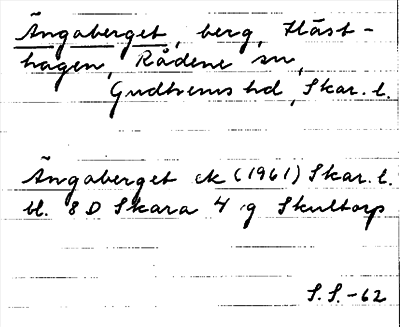 Ängaberget, berg, Häst-
hagen, Rådene sn,
Gudhems hd, Skar. l.
Ängaberget ek (1961) Skar. l.
bl. 8 D Skara 4 g Skultorp
S.S.-62